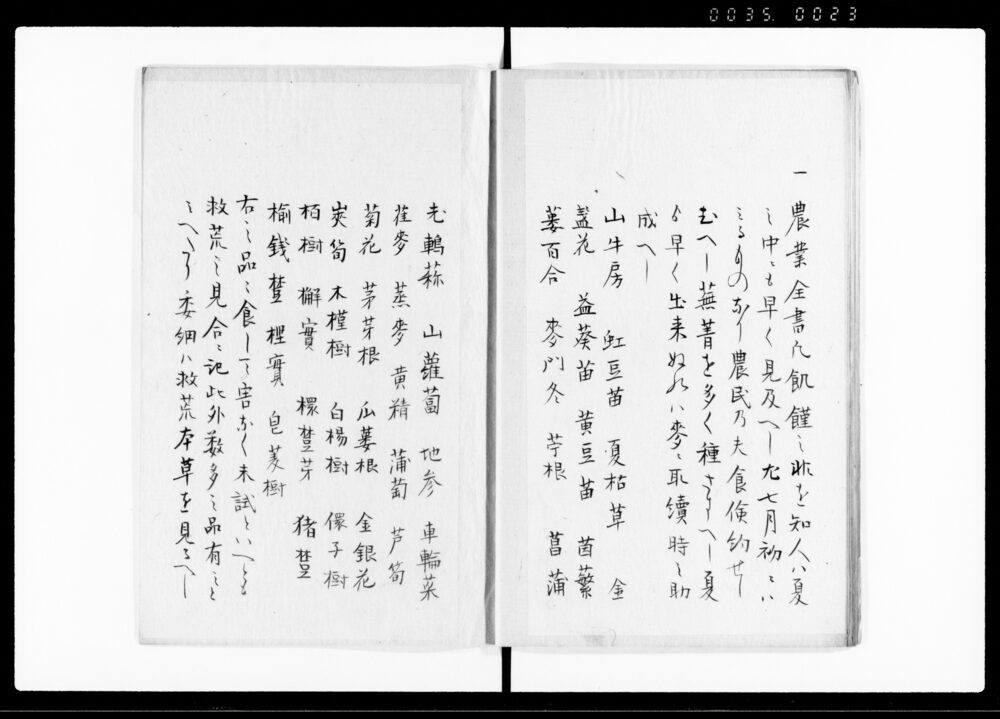 0035. 0023
一 農業全書凡飢饉之兆を知人ハ夏
之中ニも早く見及へし尤七月初ニハ
みるものなり農民乃夫食倹約せし
むへし蕪菁を多く種さすへし夏
より早く出来ぬれハ麦ニ取續時之助
成へし
山牛房 豇豆苗 夏枯草 金
盞花 益葵苗 黄豆苗 茵蔯
蔞百合 麥門冬 苧根 菖蒲
老鸛蒜 山蘿蔔 地参 車輪菜
雀麥 燕麥 黄精 蒲萄 芦筍
菊花 茅芽根 瓜蔞根 金銀花
茭筍 木槿樹 白楊樹 儇子樹
栢樹 檞實 檖椪芽 猪椪
楡銭椪 榁實 皂莢樹
右之品ニ食して害なく未試といへとも
救荒之見合ニ記此外数多之品有之と
いへとも委細ハ救荒本草を見るへし